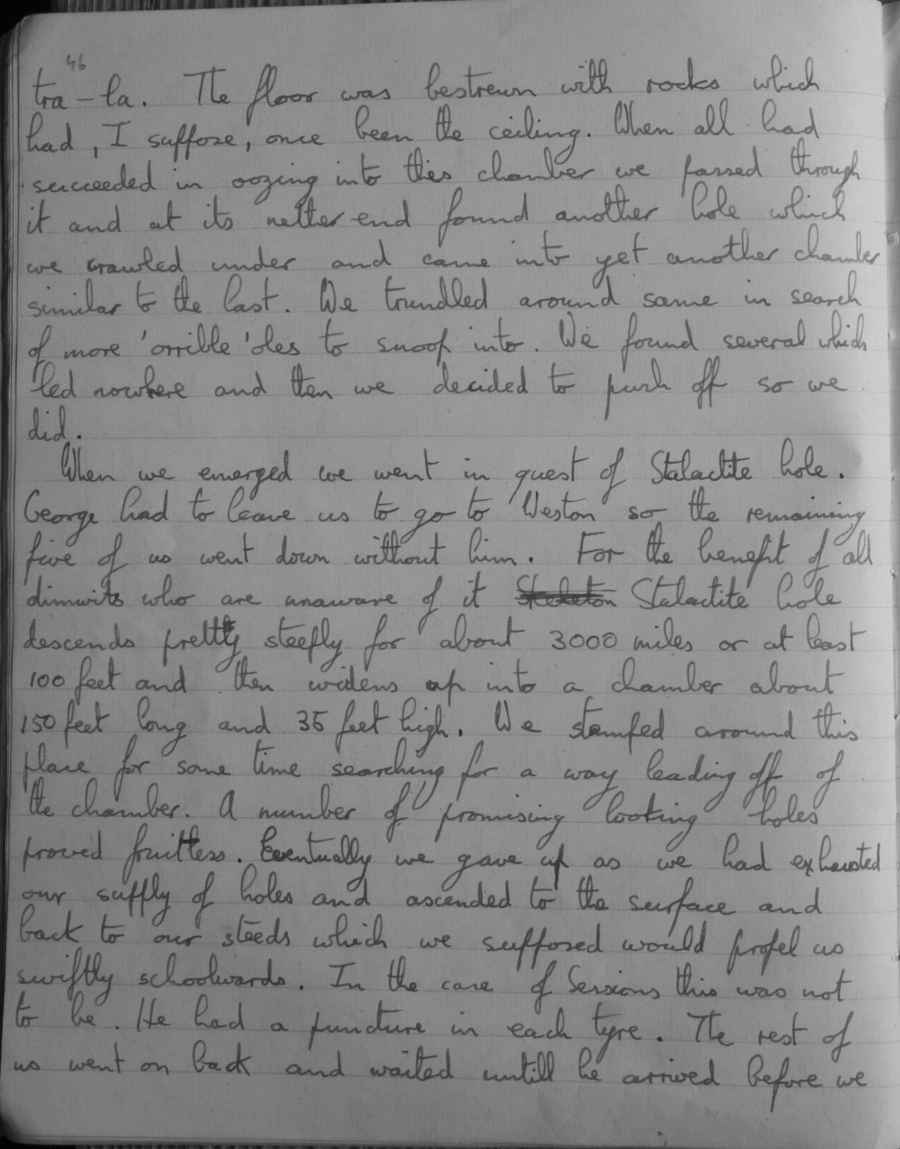 46
tra-la. The floor was bestrewn with rocks which
had, I suppose, once been the ceiling. When all had
succeeded in oozing into this chamber we passed through
it and at its nether end found another hole which
we crawled under and came into yet another chamber
similar to the last. We trundled around same in search
of more 'orrible 'oles to snoop into. We found several which
led nowhere and then we decided to push off so we
did.
When we emerged we went in quest of Stalactite hole.
George had to leave us to go to Weston so the remaining
five of us went down without him. For the benefit of all
dimwits who are unaware of it Skeleton Stalactite hole
descends pretty steeply for about 3000 miles or at least
100 feet and then widens up into a chamber about
150 feet long and 35 feet high. We stomped around this
place for some time searching for a way leading off of
the chamber. A number of promising looking holes
proved fruitless. Eventually we gave up as we had exhausted
our supply of holes and ascended to the surface and
back to our steeds which we supposed would propel us
swiftly schoolwards. In the case of Sessions this was not
to be. He had a puncture in each tyre. The rest of
us went on back and waited untill he arrived before we